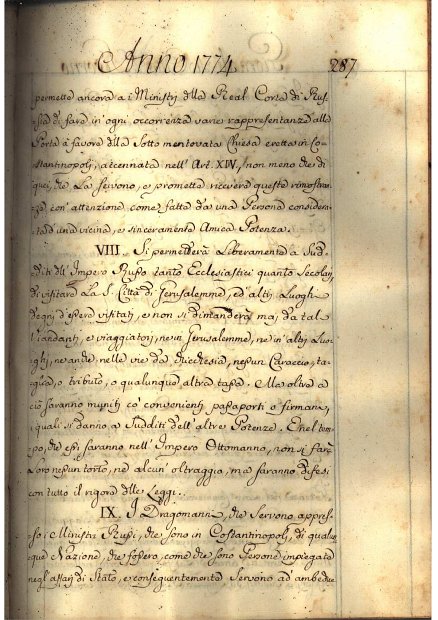 Anno 1774 287
permette ancora a i Ministri della Real Corte di Rus-
sia di fare in ogni occorrenza varie rappresentanze alla
Porta à favore della Sotto mentovata Chiesa eretta in Co-
stantinopoli, accennata nell' Art. XIV, non meno che di
quei, che La servono, e promette ricevere queste rimostran-
ze con' attenzione come fatte da una Persona considera-
ta d'una vicina, e sinceramente Amica Potenza.
VIII. Si permetterà Liberamente à Sud-
diti dell' Impero Russo tanto Ecclesiastici quanto Secolari
di visitare La S. Città di Gerusalemme, ed' altri Luoghi
degni d'essere visitati, e non si dimanderà mai da tal
viandanti, e viaggiatori, ne in Gerusalemme, ne in' altri Luo-
ghi, ne anche nelle vie da chicchesia, nessun Caraccio, ta-
glia, o tributo, o qualunque altra tassa. Ma oltre a
ciò saranno muniti cò convenienti passaporti o firmans,
i quali si danno a' Sudditi dell' altre Potenze. E nel tem-
po, che essi saranno nell' Impero Ottomanno, non si farà
Loro nessun torto, ne alcun' oltraggio, ma saranno difesi
con tutto il rigore delle Leggi.
IX. I Dragomanni, che Servono appres-
so i Ministri Russi, che sono in Costantinopoli, di qualun-
que Nazione, che fossero, come che sono Persone impiegate
negl' Affari di Stato, e conseguentemente Servono ad' ambedue